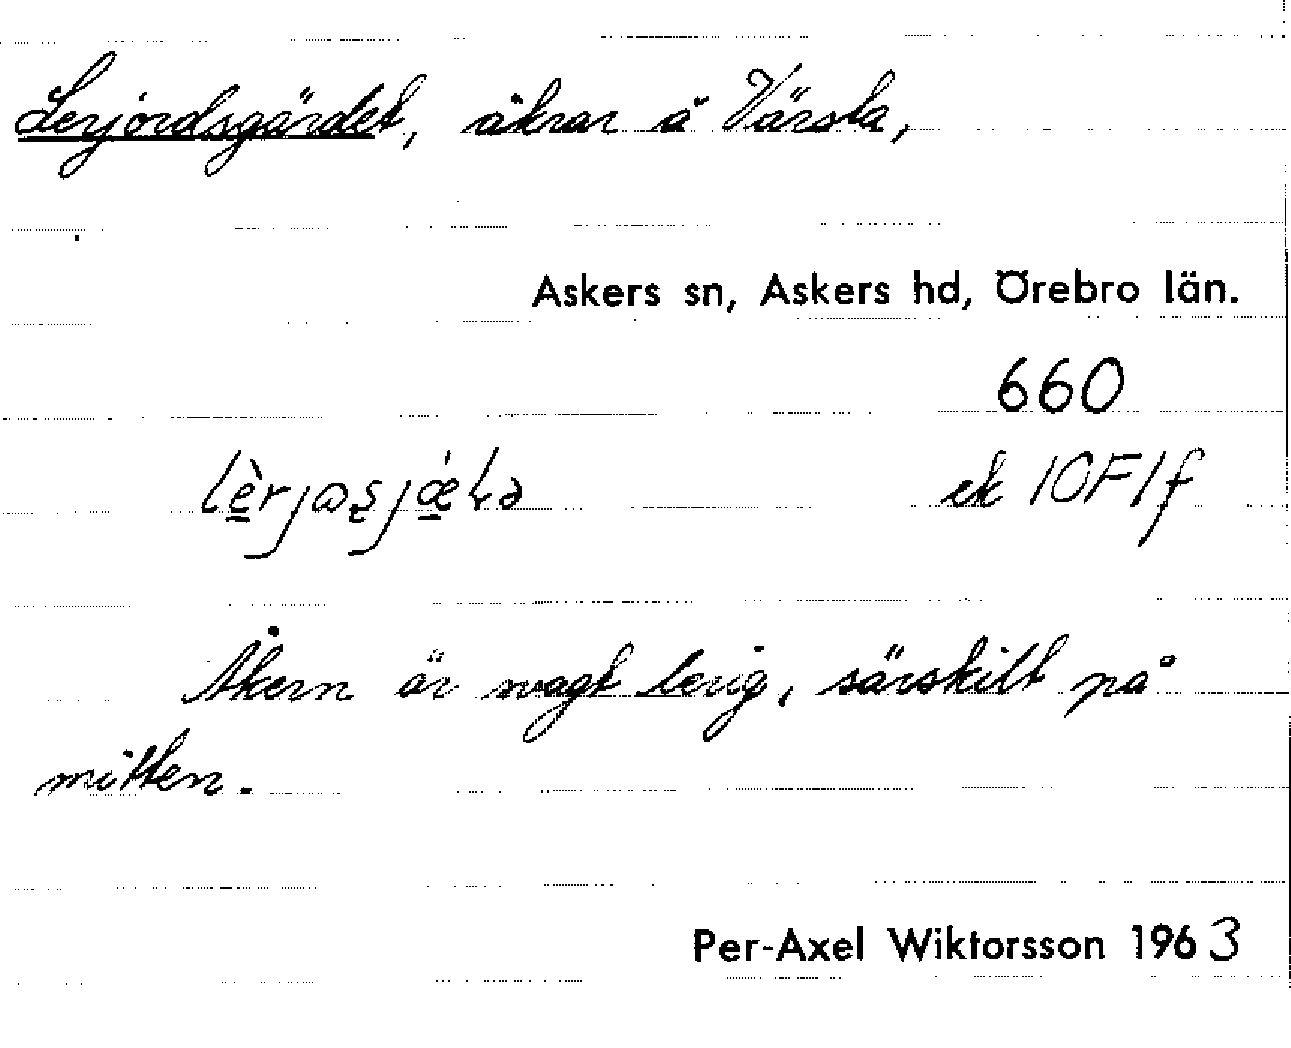 Lerjordsgärdet, åkrar å Värsta,
Askers sn, Askers hd, Örebro län.
660
ek 10F1f
Åkern är svagt lerig, särskilt på
mitten.
Per-Axel Wiktorsson 1963